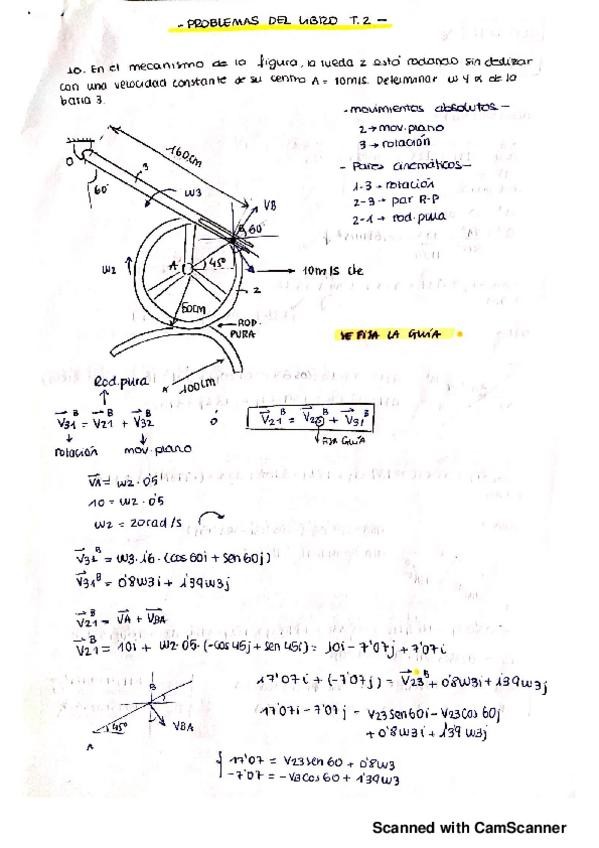 - PROBLEMAS DEL LIBRO T.2 -
10. En el mecanismo de la figura, la rueda 2 está rodando sin deslizar
con una velocidad constante de su centro A = 10m/s. Determinar ω y α de la
barra 3.
- movimientos absolutos -
2 → mov. plano
3 → rotación
- Pares cinemáticos -
1-3 → rotación
2-3 → par R-P
2-1 → rod. pura
160cm
O
3
60°
ω3
VB
B
60°
ω2
A
45°
10m/s de
2
50cm
ROD.
PURA
SE FIJA LA GUÍA
100cm
Rod. pura
V31^B = V21^B + V32^B ó V21^B = V23^B + V31^B
rotación mov. plano FIJA GUÍA
VA = ω2 · 0'5
10 = ω2 · 0'5
ω2 = 20 rad/s
V31^B = ω3 · 1'6 · (cos 60i + sen 60j)
V31^B = 0'8ω3i + 1'39ω3j
V21^B = VA + VBA
V21^B = 10i + ω2 · 0'5 · (-cos 45j + sen 45i) = 10i - 7'07j + 7'07i
17'07i + (-7'07j) = V23^B + 0'8ω3i + 1'39ω3j
17'07i - 7'07j = V23 sen 60i - V23 cos 60j
+ 0'8ω3i + 1'39ω3j
B
45°
A
VBA
17'07 = V23 sen 60 + 0'8ω3
-7'07 = -V3 cos 60 + 1'39ω3
Scanned with CamScanner